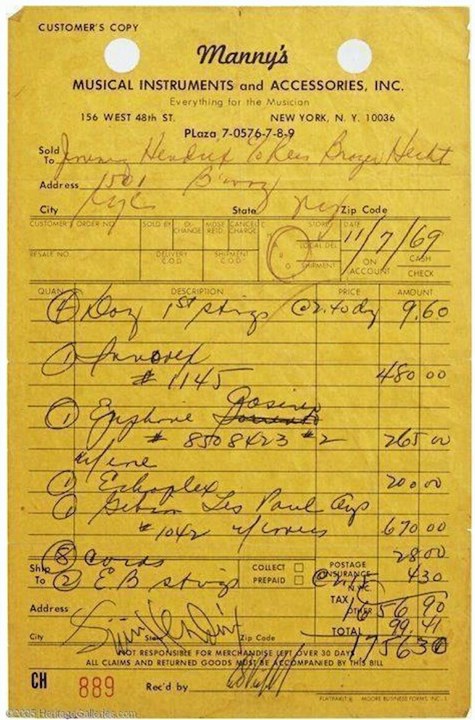 CUSTOMER'S COPY
Manny's
MUSICAL INSTRUMENTS and ACCESSORIES, INC.
Everything for the Musician
156 WEST 48th ST. NEW YORK, N. Y. 10036
PLaza 7-0576-7-8-9
Sold To Jimmy Hendrix % Ken Hecht
Address 1501 B'way
City NYC State NY Zip Code
CUSTOMER'S ORDER NO. SOLD BY EX-CHANGE MDSE. RETD. CANCEL CHARGE STORE DATE 11/7/69
LOCAL DEL. ON ACCOUNT CASH
RESALE NO. DELIVERY C.O.D. SHIPMENT C.O.D. SHIPMENT CHECK
QUAN. DESCRIPTION PRICE AMOUNT
4 Doz 1st strings @ 2.40 dz 9.60
1
# 1145 480 00
1 Epiphone
# 8508423 #2 265 00
1 Echoplex 200 00
1 Gibson Les Paul
# 1042 w/ 670 00
8 Cords 28 00
Ship To 2 E.B strings COLLECT PREPAID POSTAGE INSURANCE 4 30
TAX 1656 90
Address OTHER 99 41
City State Zip Code TOTAL 1756 30
NOT RESPONSIBLE FOR MERCHANDISE LEFT OVER 30 DAYS
ALL CLAIMS AND RETURNED GOODS MUST BE ACCOMPANIED BY THIS BILL
CH 889 Rec'd by
MOORE BUSINESS FORMS INC.